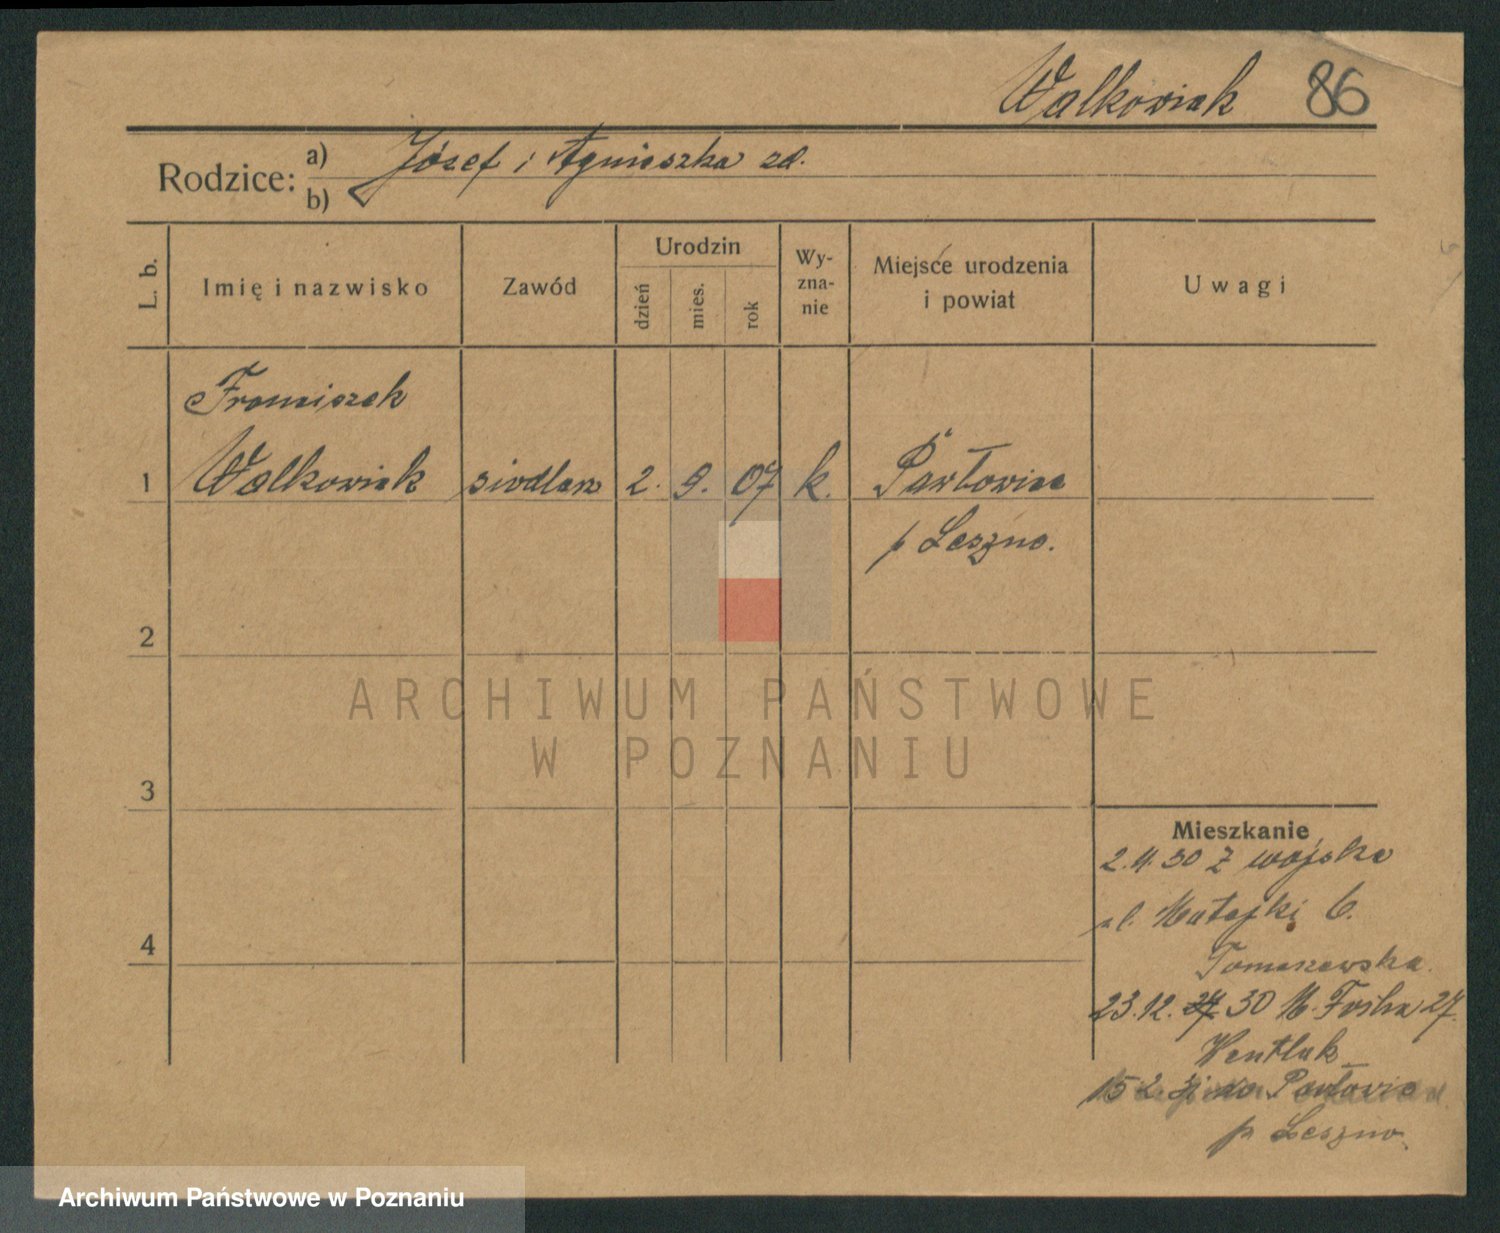 Walkowiak 86
Rodzice: a) Józef i Agnieszka zd.
b)
L. b.
Imię i nazwisko
Zawód
Urodzin
dzień
mies.
rok
Wy-
zna-
nie
Miejsce urodzenia
i powiat
Uwagi
Franciszek
1 Walkowiak siodlarz 2. 9. 07 k. Pawłowice
p Leszno.
2
3
4
ARCHIWUM PAŃSTWOWE
W POZNANIU
Mieszkanie
2.4.30 z wojska
ul. Matejki 6.
Tomaszewska.
23.12. 30 M. Focha 27.
Wentlak
15 2 31 do Pawłowic
p Leszno.
Archiwum Państwowe w Poznaniu